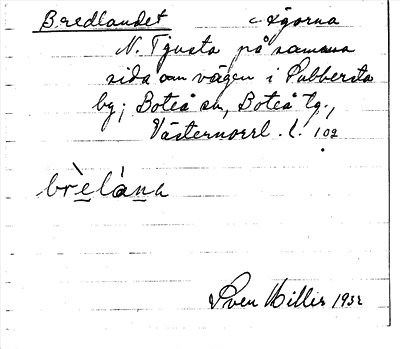 Bredlandet c-ägorna
N. Tjusta på samma
sida om vägen i Pubbersta
by; Boteå sn, Boteå tg.,
Västernorrl. l. 102
brèlána
Sven Hillis 1932